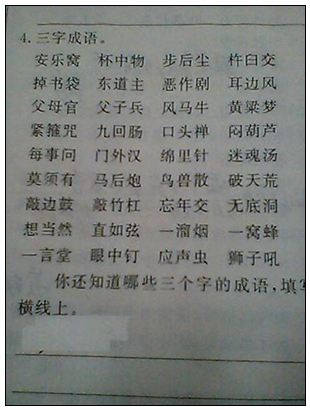 4.三字成语。
安乐窝 杯中物 步后尘 杵臼交
掉书袋 东道主 恶作剧 耳边风
父母官 父子兵 风马牛 黄粱梦
紧箍咒 九回肠 口头禅 闷葫芦
每事问 门外汉 绵里针 迷魂汤
莫须有 马后炮 鸟兽散 破天荒
敲边鼓 敲竹杠 忘年交 无底洞
想当然 直如弦 一溜烟 一窝蜂
一言堂 眼中钉 应声虫 狮子吼
你还知道哪些三个字的成语,填写
横线上。